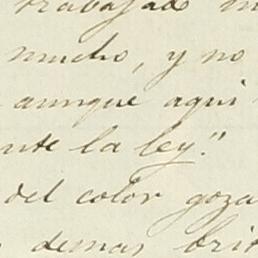 trabajado
mucho, y no
aunque aqui
nte la ley."
del color goza
demas brit